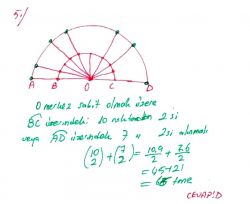 5.)
A B O C D
O merkez sabit olmak üzere
BC üzerindeki 10 noktadan 2 si
veya AD üzerindeki 7 " 2si alınmalı
(10 2) + (7 2) = 10.9/2 + 7.6/2
= 45+21
= 66 tane
CEVAP:D